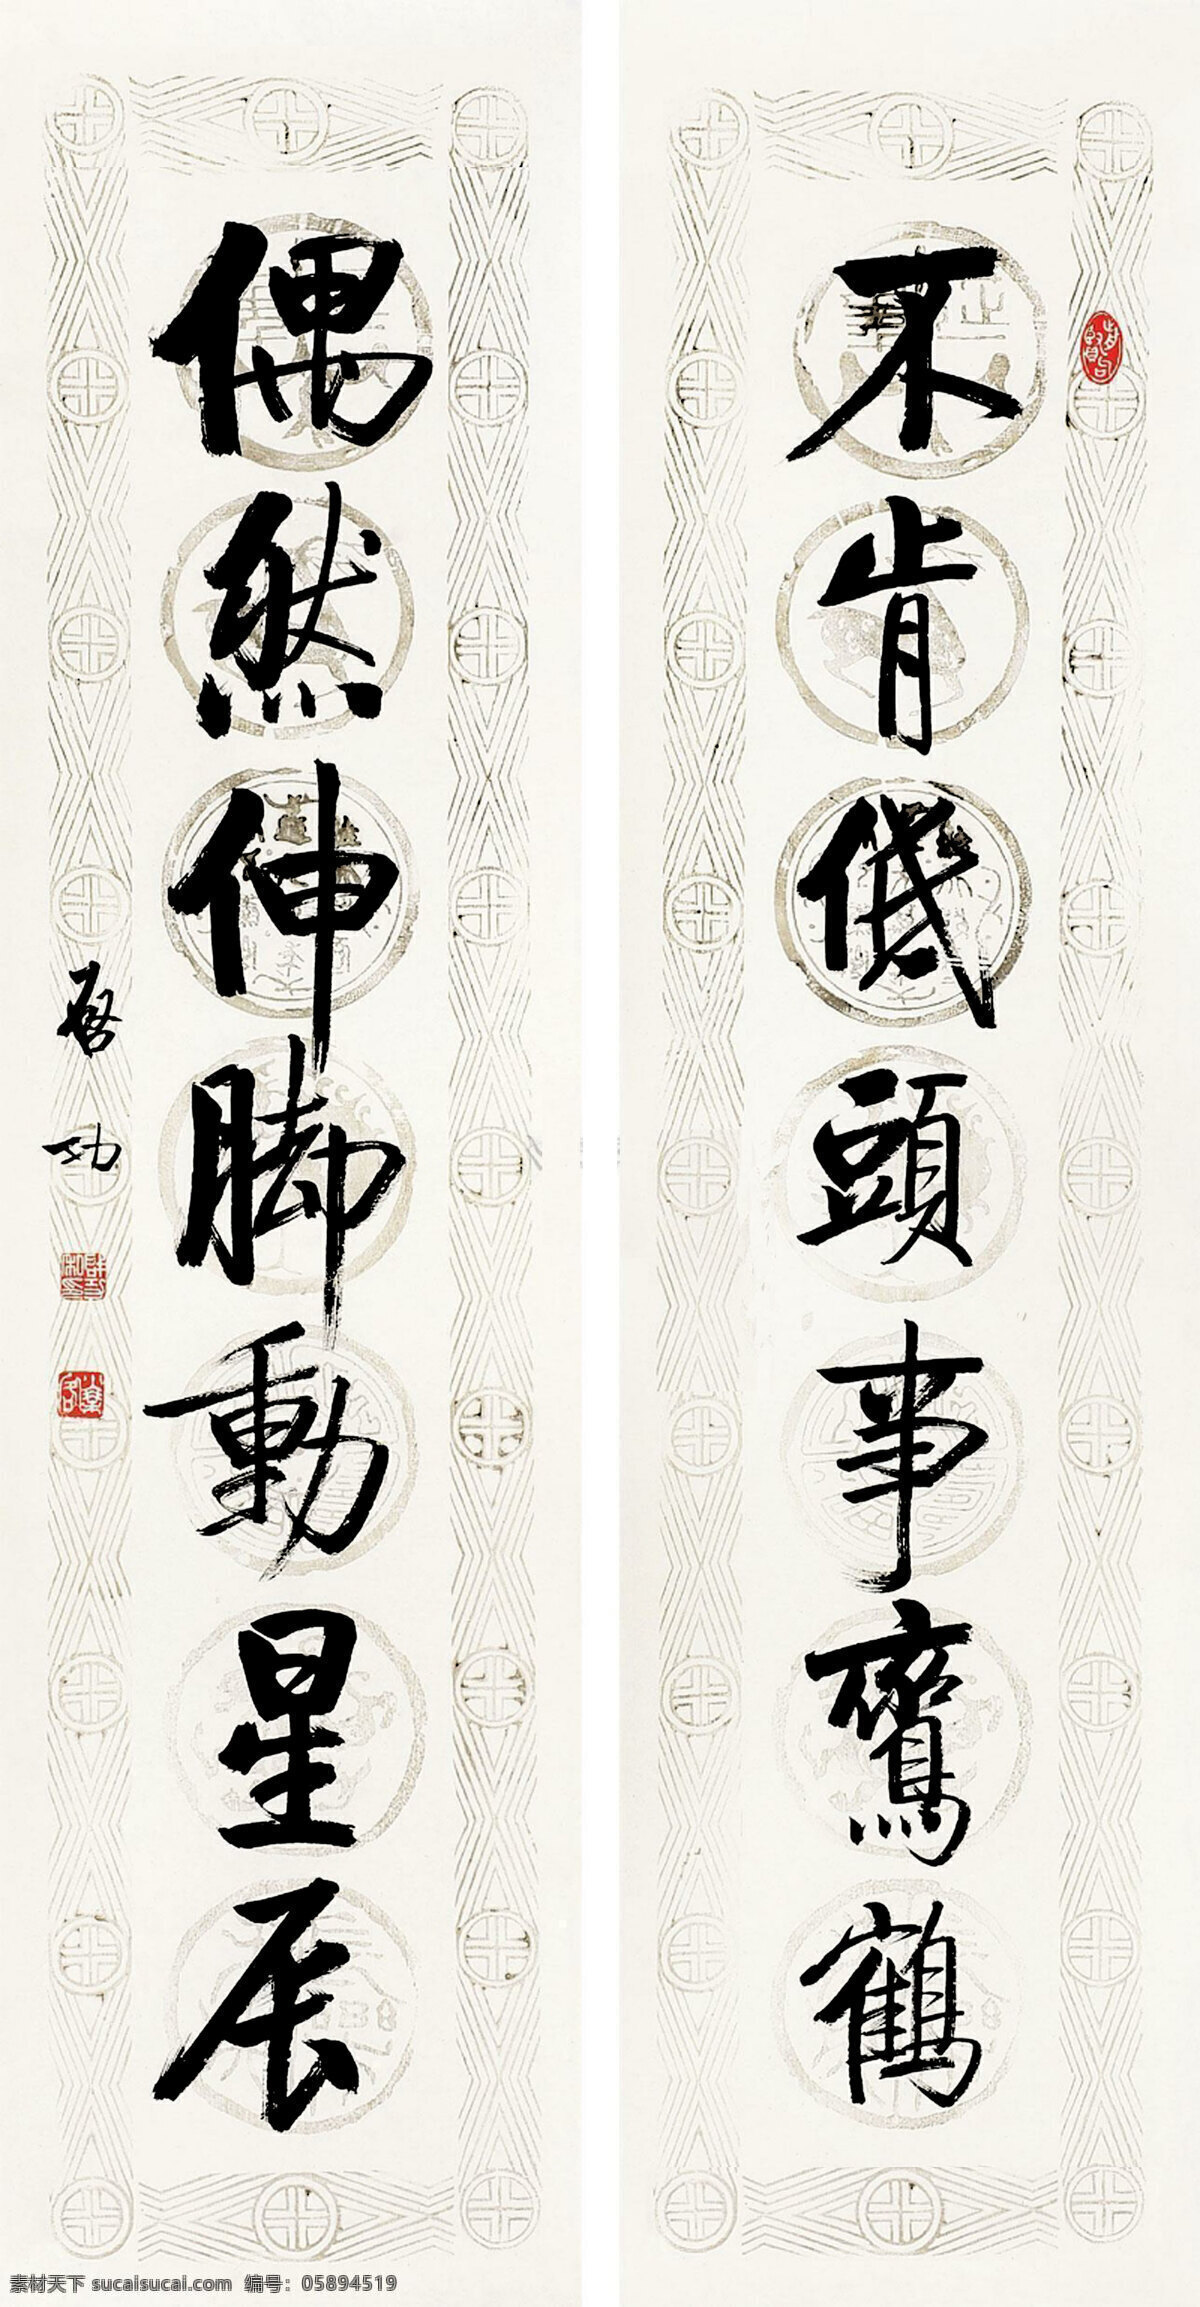 不肯低頭事鸞鶴
偶然伸脚動星辰
啓功
素材天下 sucaisucai.com 编号：05894519